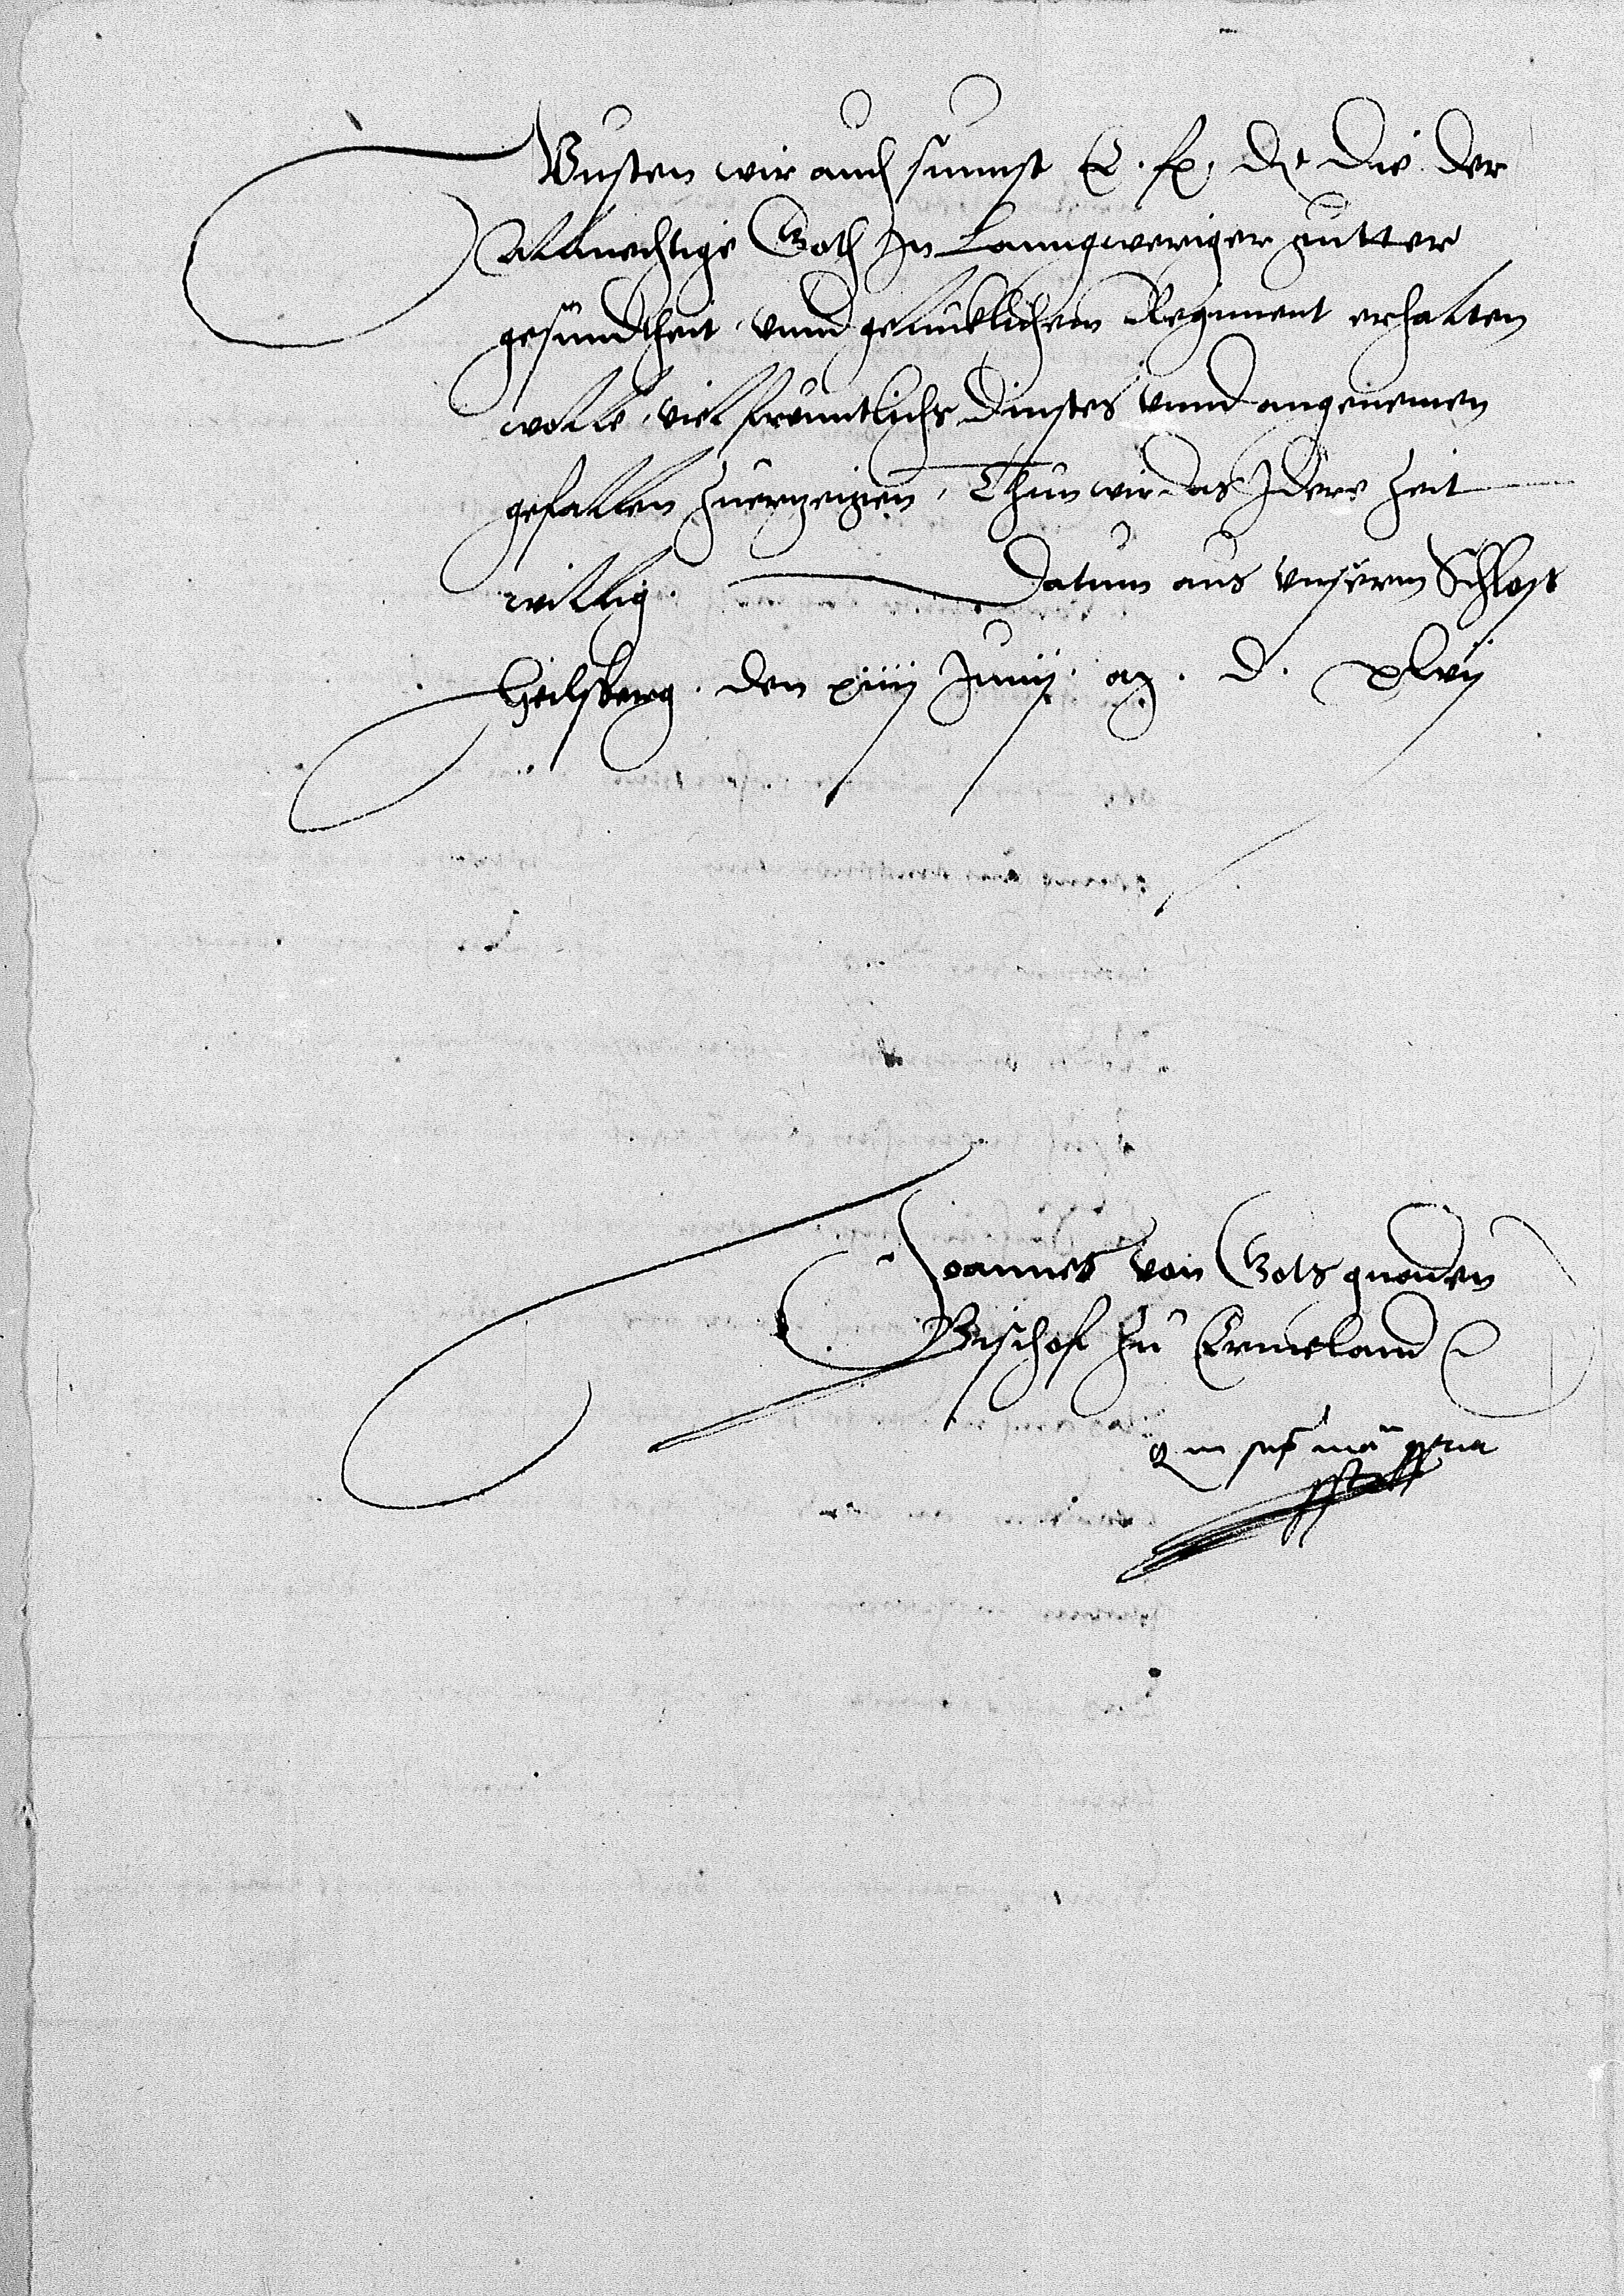 Wusten wir auch sunnst E. f. D. die der
Allmechtige Goth In lanngweriger gutter
gesundtheit vnnd gelucklichem Regiment erhalten
wolle, viel freuntlichs dinstes vnnd angenemen
gefallen zuerzeigen, Thun wir das Idere zeit
willig. Datum aus vnserm Schloss
Heilsberg. den xiiij Junij. a. D. xlvij
Joannes von Gots gnaden
Bischof zu Ermeland
manu